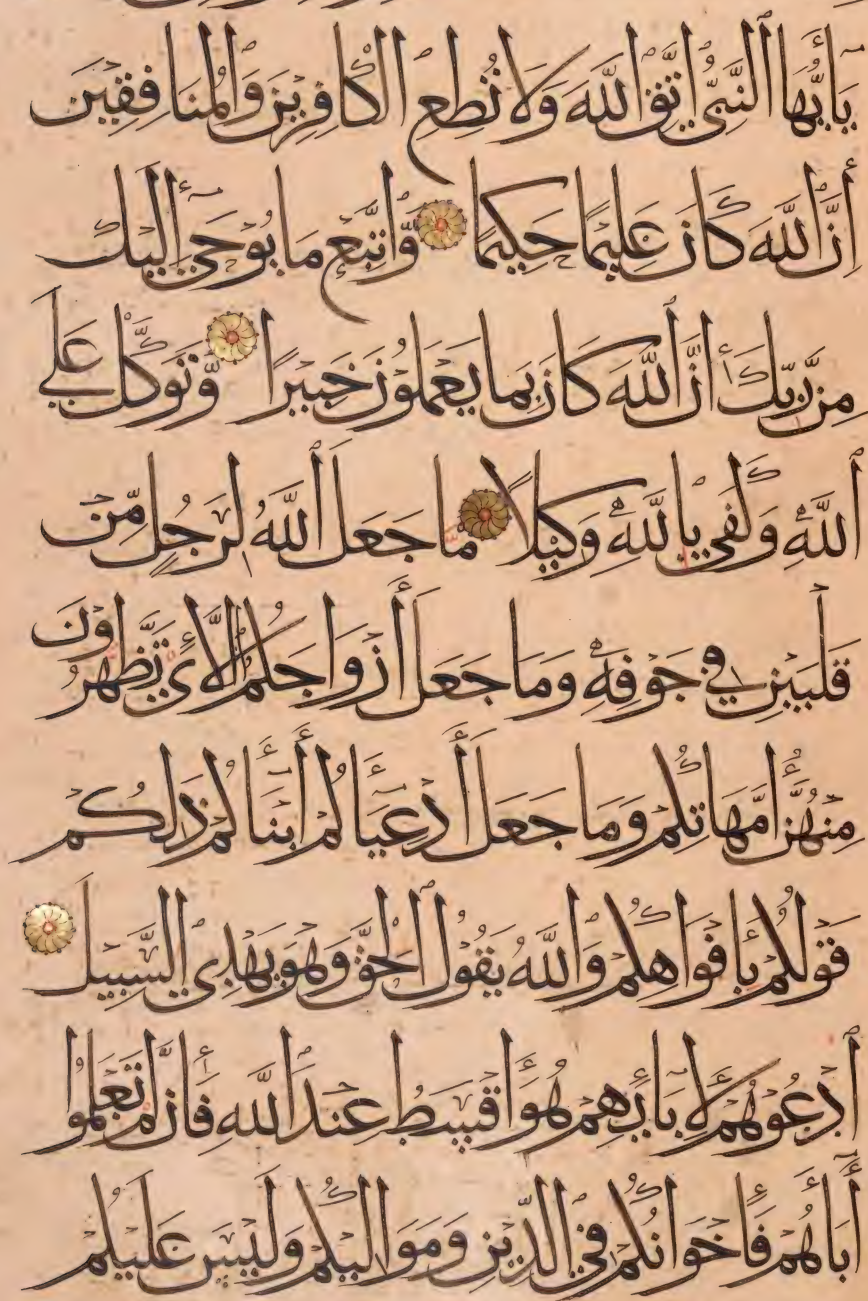 يَا أَيُّهَا النَّبِيُّ اتَّقِ اللَّهَ وَلَا تُطِعِ الْكَافِرِينَ وَالْمُنَافِقِينَ
إِنَّ اللَّهَ كَانَ عَلِيمًا حَكِيمًا وَاتَّبِعْ مَا يُوحَى إِلَيْكَ
مِن رَّبِّكَ إِنَّ اللَّهَ كَانَ بِمَا يَعْمَلُونَ خَبِيرًا وَتَوَكَّلْ عَلَى
اللَّهِ وَكَفَى بِاللَّهِ وَكِيلًا مَّا جَعَلَ اللَّهُ لِرَجُلٍ مِّن
قَلْبَيْنِ فِي جَوْفِهِ وَمَا جَعَلَ أَزْوَاجَكُمُ اللَّائِي تَظَّهَّرُونَ
مِنْهُنَّ أُمَّهَاتِكُمْ وَمَا جَعَلَ أَدْعِيَاءَكُمْ أَبْنَاءَكُمْ ذَلِكُمْ
قَوْلُكُمْ بِأَفْوَاهِكُمْ وَاللَّهُ يَقُولُ الْحَقَّ وَهُوَ يَهْدِي السَّبِيلَ
ادْعُوهُمْ لِآبَائِهِمْ هُوَ أَقْسَطُ عِندَ اللَّهِ فَإِن لَّمْ تَعْلَمُوا
آبَاءَهُمْ فَإِخْوَانُكُمْ فِي الدِّينِ وَمَوَالِيكُمْ وَلَيْسَ عَلَيْكُمْ